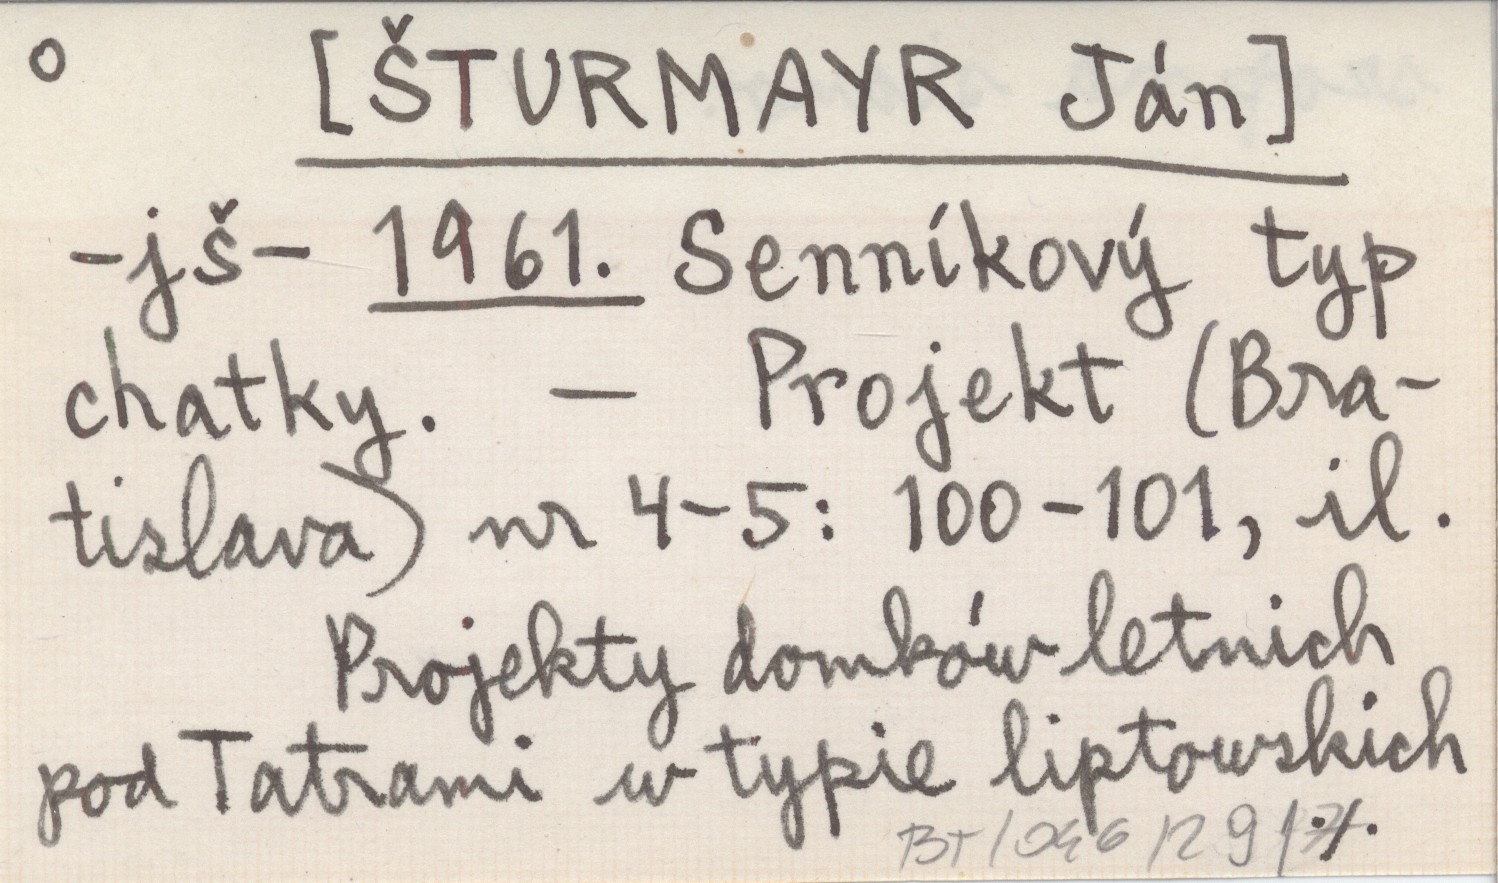 o [ŠTURMAYR Ján]
-jš- 1961. Senníkový typ
chatky. — Projekt (Bra-
tislava) nr 4-5: 100-101, il.
Projekty domków letnich
pod Tatrami w typie liptowskich
BT/046/29/7/.